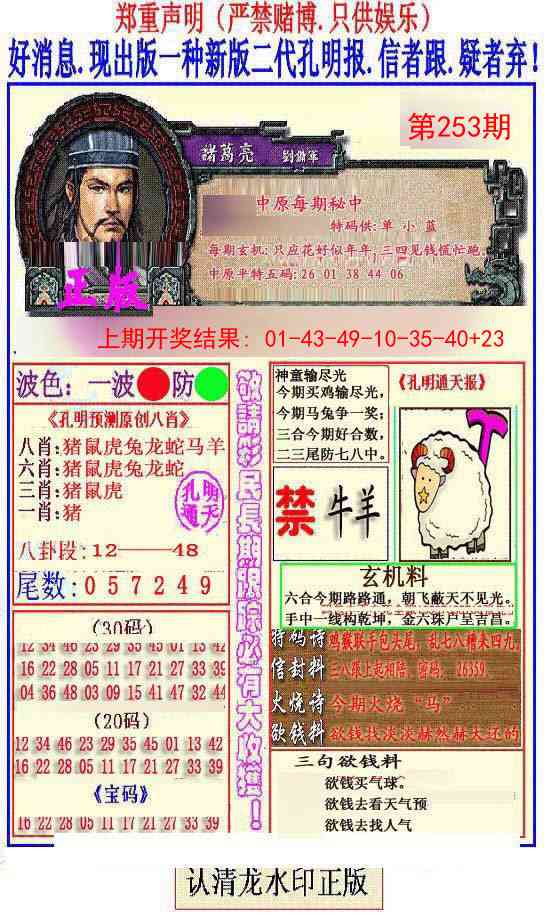 郑重声明（严禁赌博.只供娱乐）
好消息.现出版一种新版二代孔明报.信者跟.疑者弃!
第253期
諸葛亮 劉備軍
中原每期秘中
特码供: 单 小 蓝
每期玄机: 只应花好似年年, 三四见钱慌忙跑.
中原平特五码: 26 01 38 44 06
正版
上期开奖结果: 01-43-49-10-35-40+23
波色: 一波 防
《孔明预测原创八肖》
八肖:猪鼠虎兔龙蛇马羊
六肖:猪鼠虎兔龙蛇
三肖:猪鼠虎
一肖:猪
孔明
通天
八卦段: 12——48
尾数: 0 5 7 2 4 9
(30码)
12 34 46 23 29 35 45 01 13 42
16 22 28 05 11 17 21 27 33 39
04 36 48 03 09 15 41 47 32 44
(20码)
12 34 46 23 29 35 45 01 13 42
16 22 28 05 11 17 21 27 33 39
《宝码》
16 22 28 05 11 17 21 27 33 39
敬請彩民長期跟踪必有大收獲!
神童输尽光
今期买鸡输尽光,
今期马兔争一奖;
三合今期好合数,
二三尾防七八中。
《孔明通天报》
禁 牛羊
玄机料
六合今期路路通, 朝飞蔽天不见光。
手中一线构乾坤, 金六珠户呈吉昌。
特码诗 鸡猴联手包头尾, 乱七八糟来四九.
信封料
火烧诗 今期火烧“马”
欲钱料
三句欲钱料
欲钱买气球。
欲钱去看天气预
欲钱去找人气
认清龙水印正版